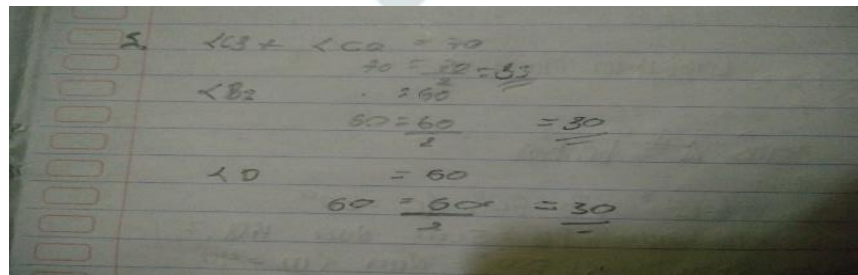 2. <C3 + <C2 = 70
70 = 70/2 = 35
<B2 = 60
60 = 60/2 = 30
<D = 60
60 = 60°/2 = 30